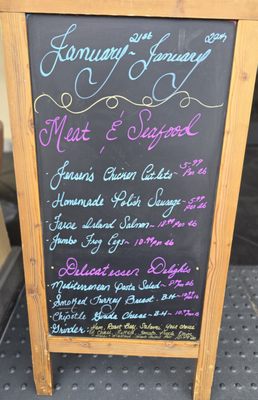 January 21st - January 29th
Meat & Seafood
- Jensen's Chicken Cutlets - 5.99 per lb
- Homemade Polish Sausage - 5.99 per lb
- Faroe Island Salmon - 10.99 per lb
- Jumbo Frog Legs - 10.99 per lb
Delicatessen Delights
- Mediterranean Pasta Salad - per lb
- Smoked Turkey Breast - B.H - 10.99 per lb
- Chipotle Gouda Cheese - B.H - 10.99 lb
- Grinder: Ham, Roast Beef, Salami, your choice